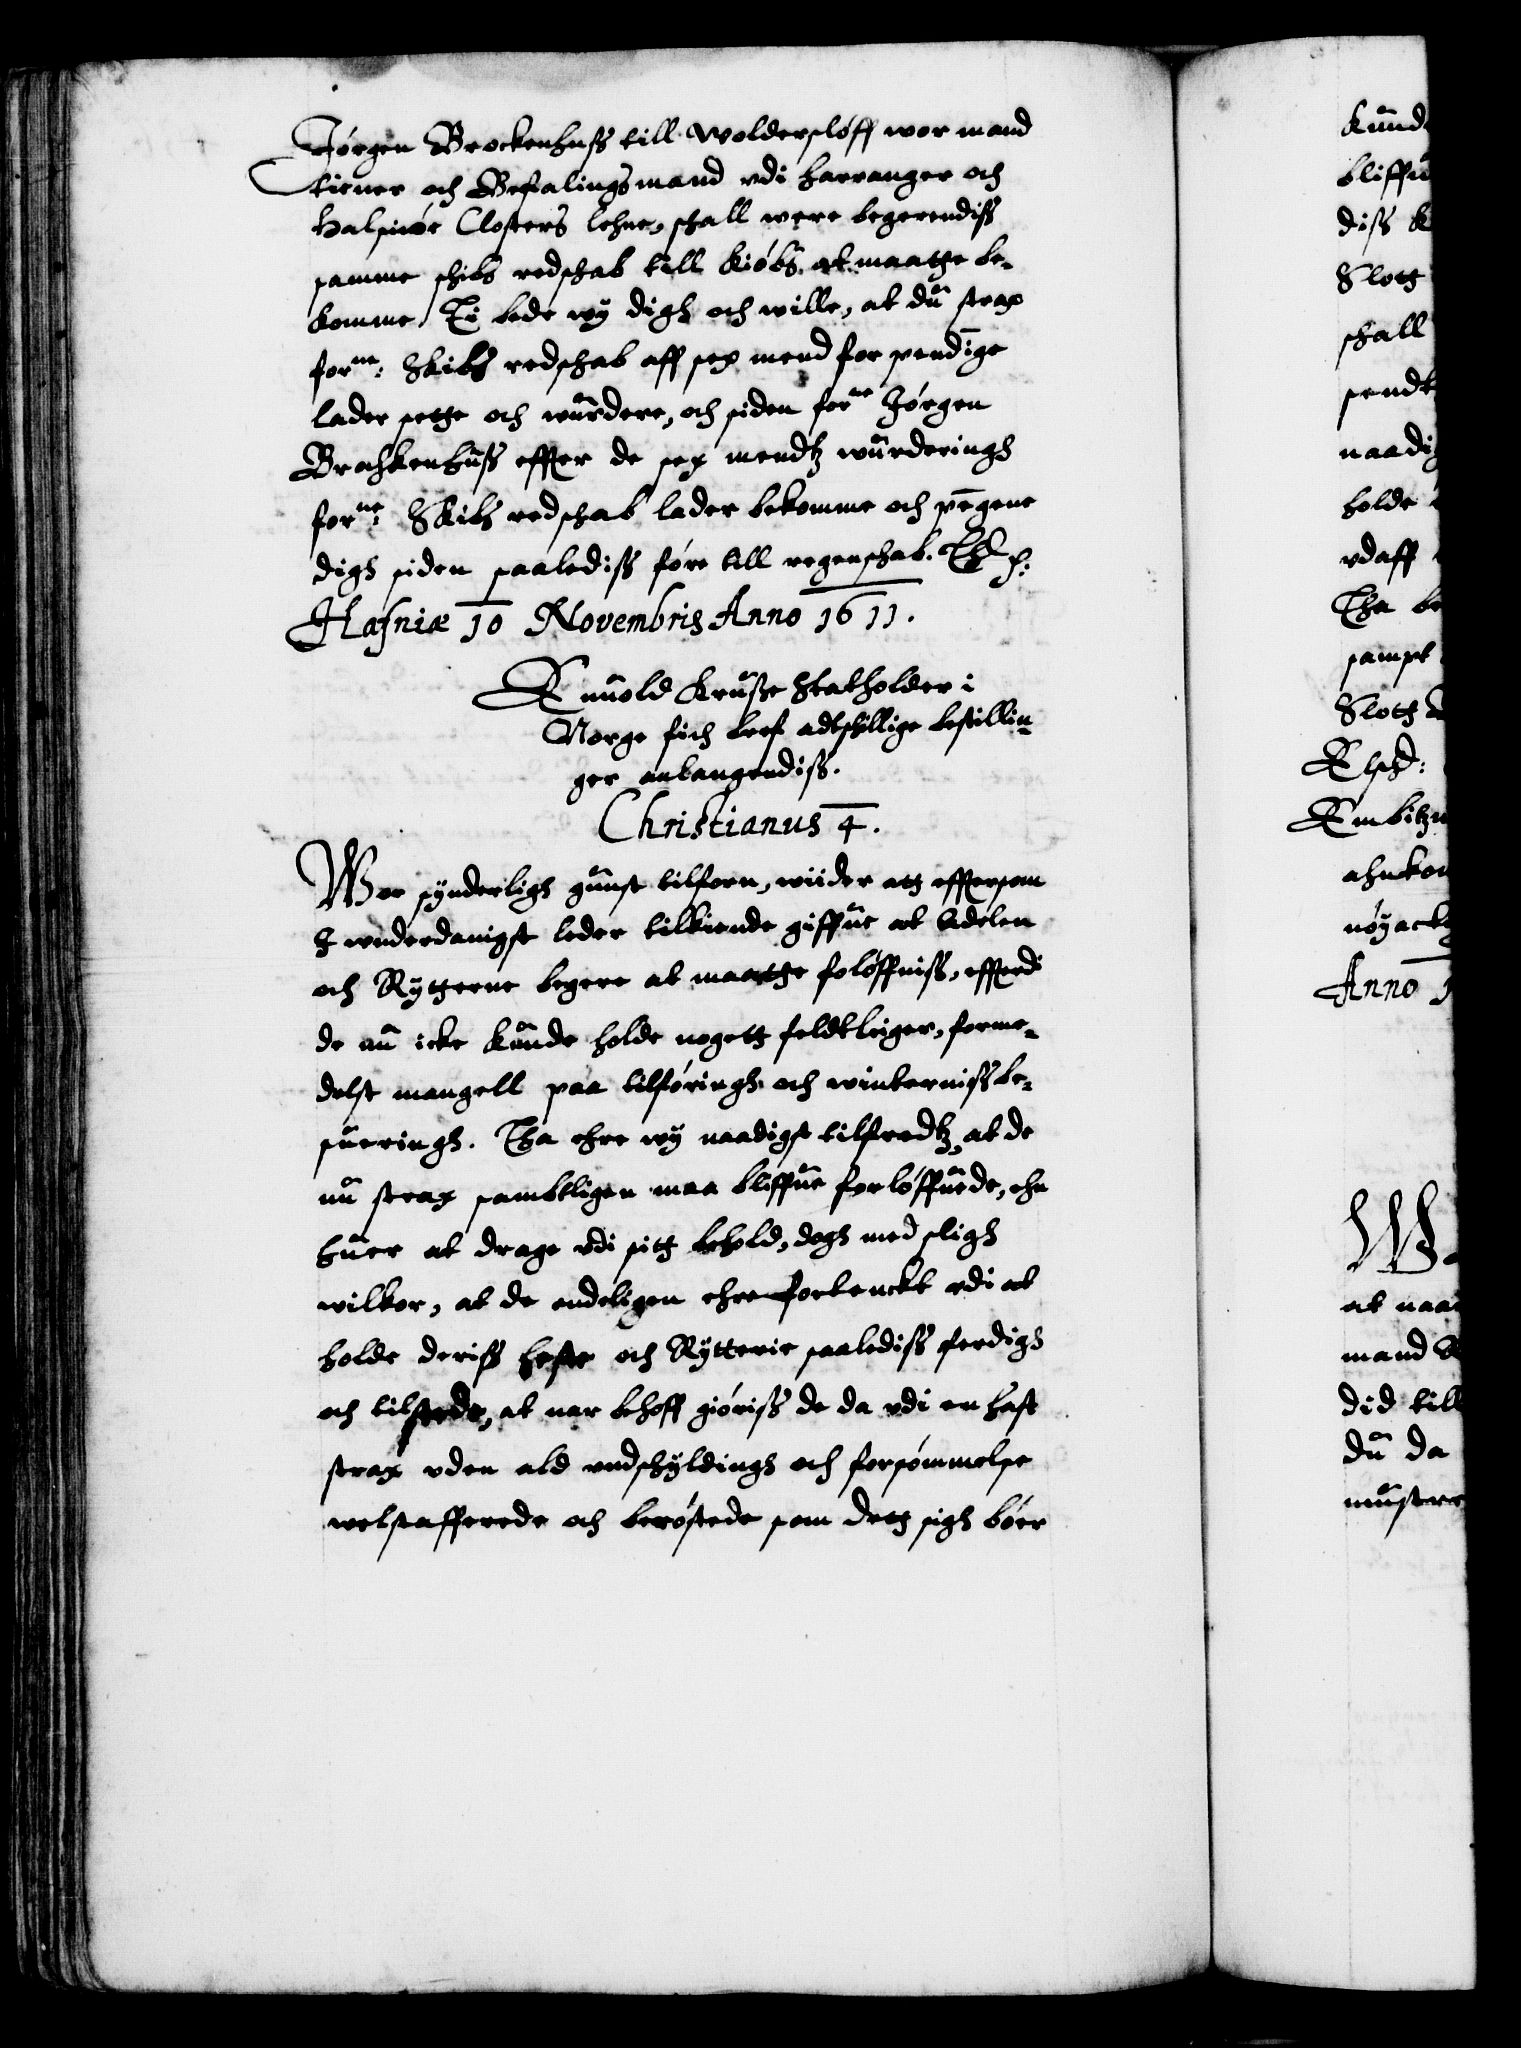 Jørgen Brockenhuss till Woldersløff wor mand
tiener och Befalingsmand vdi Harranger och
Halsnøe Closters lehne, schall were begerendiss
samme schibs redschab till kiøbs at maatte be-
komme. Ti bede wy digh och wille, at du strax
forne: Skibs redschab aff sex mend for pendinge
lader sette och wurdere, och siden forne Jørgen
Brockenhuss effter de sex mendtz wurderingh
forne: Skibs redschab lader bekomme och pengene
digh siden saalediss føre till regenschab.
Hafniæ 10 Novembris Anno 1611.
Enuold Krusse Statholder i
Norge fich bref adtschillige bestillin-
ger anlangendiss.
Christianus 4.
Wor synderligh gunst tilforn, wiider att efftersom
I wnderdanigst leder tilkiende giffue at Adelen
och Rytterne begere at maatte foløffniss, effterdi
de nu icke kunde holde nogett feldtleiger, forme-
delst mangell paa tilføringh och winterniss be-
sueringh. Tha ehre wy naadigst tilfredtz, at de
nu strax sambtligen maa bliffue forløffuede, ehn
huer at drage vdi sitt behold, dogh med sligh
wilkor, at de endeligen ehre fortenckt vdi at
holde deriss heste och Rytterie saalediss ferdigh
och tilstede, at nar behoff giøriss de da vdi en hast
strax vden ald vndschyldingh och forsømmelse
welstafferede och berøstede som dett sigh bøer
kund
bliffu
diss
Slott
schall
sendt
naadig
holde
vdaff
Tha be
sampt
Slott
Embitzm
ahnkom
nøyacti
Anno 1
W
at naa
mand
did till
du da
mustere